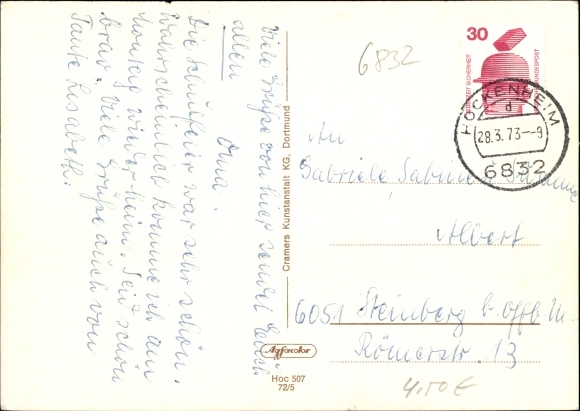 Viele Grüße von hier sendet Euch
allen Oma.
Die Schulfeier war sehr schön.
Wahrscheinlich komme ich am
Montag wieder heim. Seid schön
brav. Viele Grüße auch von
Tante Lisabeth.
Cramers Kunstanstalt KG, Dortmund
Agfacolor
Hoc 507
72/5
6832
30
JEDERZEIT SICHERHEIT
BUNDESPOST
HOCKENHEIM
d
28.3.73--9
6832
An
Gabriele Sabine
Albert
6051 Steinberg b. Offb. M.
Römerstr. 13
4,50 €